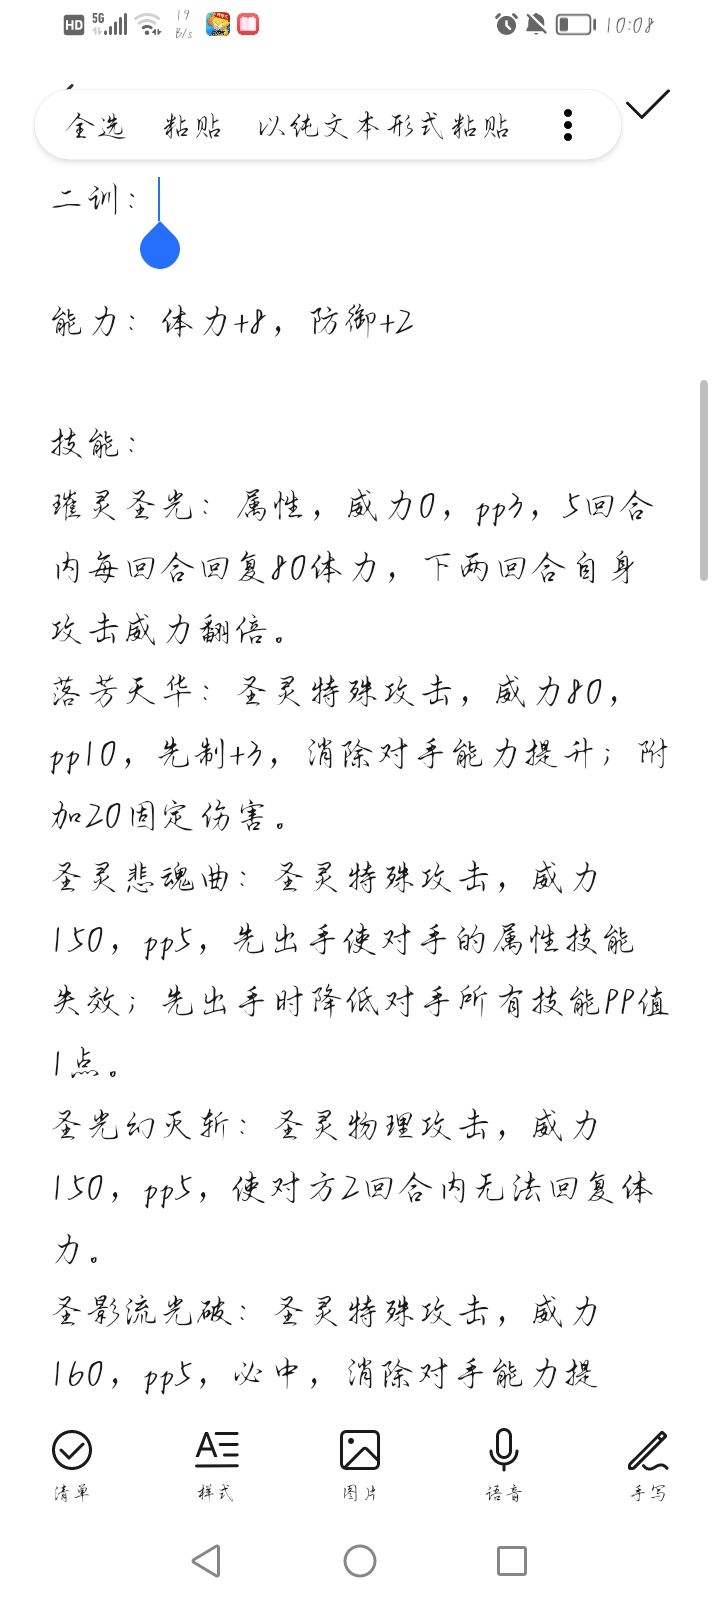 HD 5G 19 B/s 10:08
全选 粘贴 以纯文本形式粘贴
二训：
能力：体力+8，防御+2
技能：
璀灵圣光：属性，威力0，pp3，5回合
内每回合回复80体力，下两回合自身
攻击威力翻倍。
落芳天华：圣灵特殊攻击，威力80，
pp10，先制+3，消除对手能力提升；附
加20固定伤害。
圣灵悲魂曲：圣灵特殊攻击，威力
150，pp5，先出手使对手的属性技能
失效；先出手时降低对手所有技能PP值
1点。
圣光幻灭斩：圣灵物理攻击，威力
150，pp5，使对方2回合内无法回复体
力。
圣影流光破：圣灵特殊攻击，威力
160，pp5，必中，消除对手能力提
清单 样式 图片 语音 手写